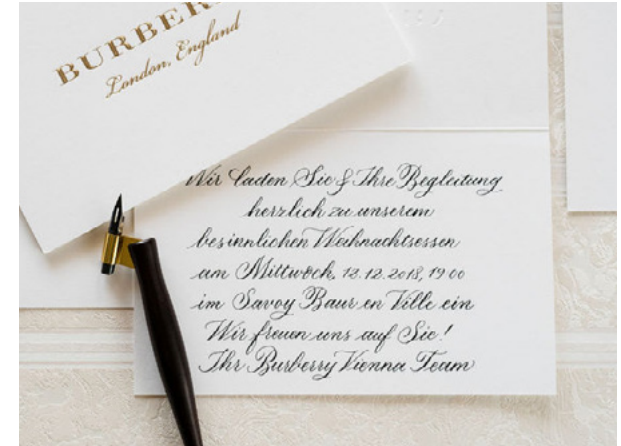 BURBER
London, England
Wir laden Sie & Ihre Begleitung
herzlich zu unserem
besinnlichen Weihnachtsessen
am Mittwoch, 12.12.2018, 19:00
im Savoy Baur en Ville ein
Wir freuen uns auf Sie!
Ihr Burberry Vienna Team